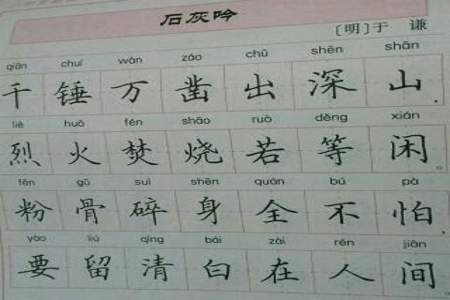 石灰吟
〔明〕于 谦
qiān chuí wàn záo chū shēn shān
千锤万凿出深山.
liè huǒ fén shāo ruò děng xián
烈火焚烧若等闲。
fěn gǔ suì shēn quán bú pà
粉骨碎身全不怕
yào liú qīng bái zài rén jiān
要留清白在人间.